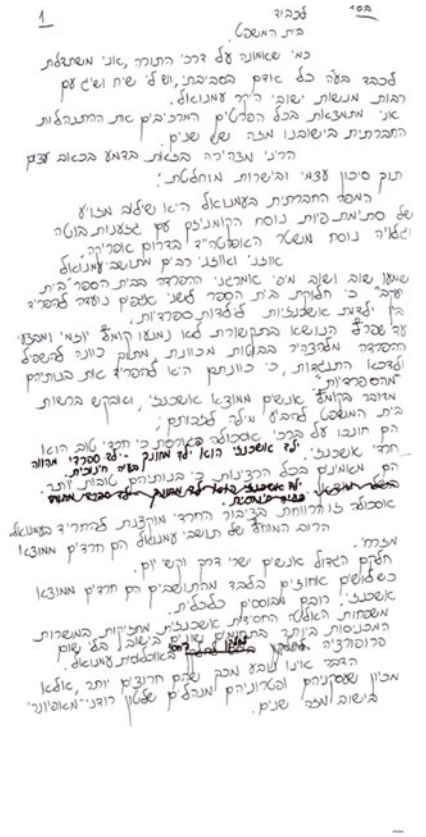 בס"ד
1
לכבוד
בית המשפט.
כמי שאמונה על דרכי התורה, אני משתדלת
לכבד בע"ה כל אדם בסביבתי, ויש לי שיח ושיג עם
רבות מנשות ישובי היקר עמנואל.
אני מתמצאת בכל הפרטים המרכיבים את ההתנהלות
החברתית בישובנו מזה שנים.
הריני מצהירה בזאת בדמע בכאב עצום
תוך סיכון עצמי ובישרות מוחלטת:
המפה החברתית בעמנואל היא שילוב מזויע
של סתימת פיות נוסח הקומוניזם עם גזענות בוטה
וגלויה נוסח משטר האפרטהייד בדרום אפריקה.
אוזני ואוזני רבים מתושבי עמנואל
שמעו שוב ושוב מפי אמרגני ההפרדה בבית הספר "בית
יעקב" כי חלוקת בית הספר לשני אגפים נועדה להפריד
בין ילדות אשכנזיות לילדות ספרדיות.
עד שפרץ הנושא בתקשורת לא נמנעו יוזמי ומבצעי
ההפרדה מלהצהיר בבוטות מכוונת, מתוך כוונה להשפיל
ולדכא התנגדות, כי כוונתם היא להפריד את בנותיהם
"מהספרדיות".
מדובר באנשים ממוצא אשכנזי, ואבקש ברשות
בית המשפט להביע מילה לזכותם:
הם חונכו על ברכי אסכולה הגורסת כי חרדי טוב הוא
חרדי אשכנזי. ילד אשכנזי הוא ילד מחונך - ילד ספרדי מהווה
בעיה חינוכית.
הם מאמינים בכל הרצינות כי בנותיהם טובות יותר.
אסכולה זו הרווחת בציבור החרדי מוקצנת להחריד בעמנואל.
הרוב המוחלט של תושבי עמנואל הם חרדים ממוצא
מזרחי.
חלקם הגדול אנשים ישרי דרך וקשי יום.
כשלושים אחוזים בלבד מהתושבים הם חרדים ממוצא
אשכנזי. רובם מבוססים כלכלית.
משפחות האליטה החסידית אשכנזית מחזיקות במשרות
המכניסות ביותר בתחומים שונים בישוב, בלי שום
פרופורציה לחלקן היחסי באוכלוסית עמנואל.
הדבר אינו נובע מכך שהם חרוצים יותר, אלא
מכיון שעסקניהם ופטרוניהם מנהלים שלטון רודני-מאפיונרי
בישוב מזה שנים.